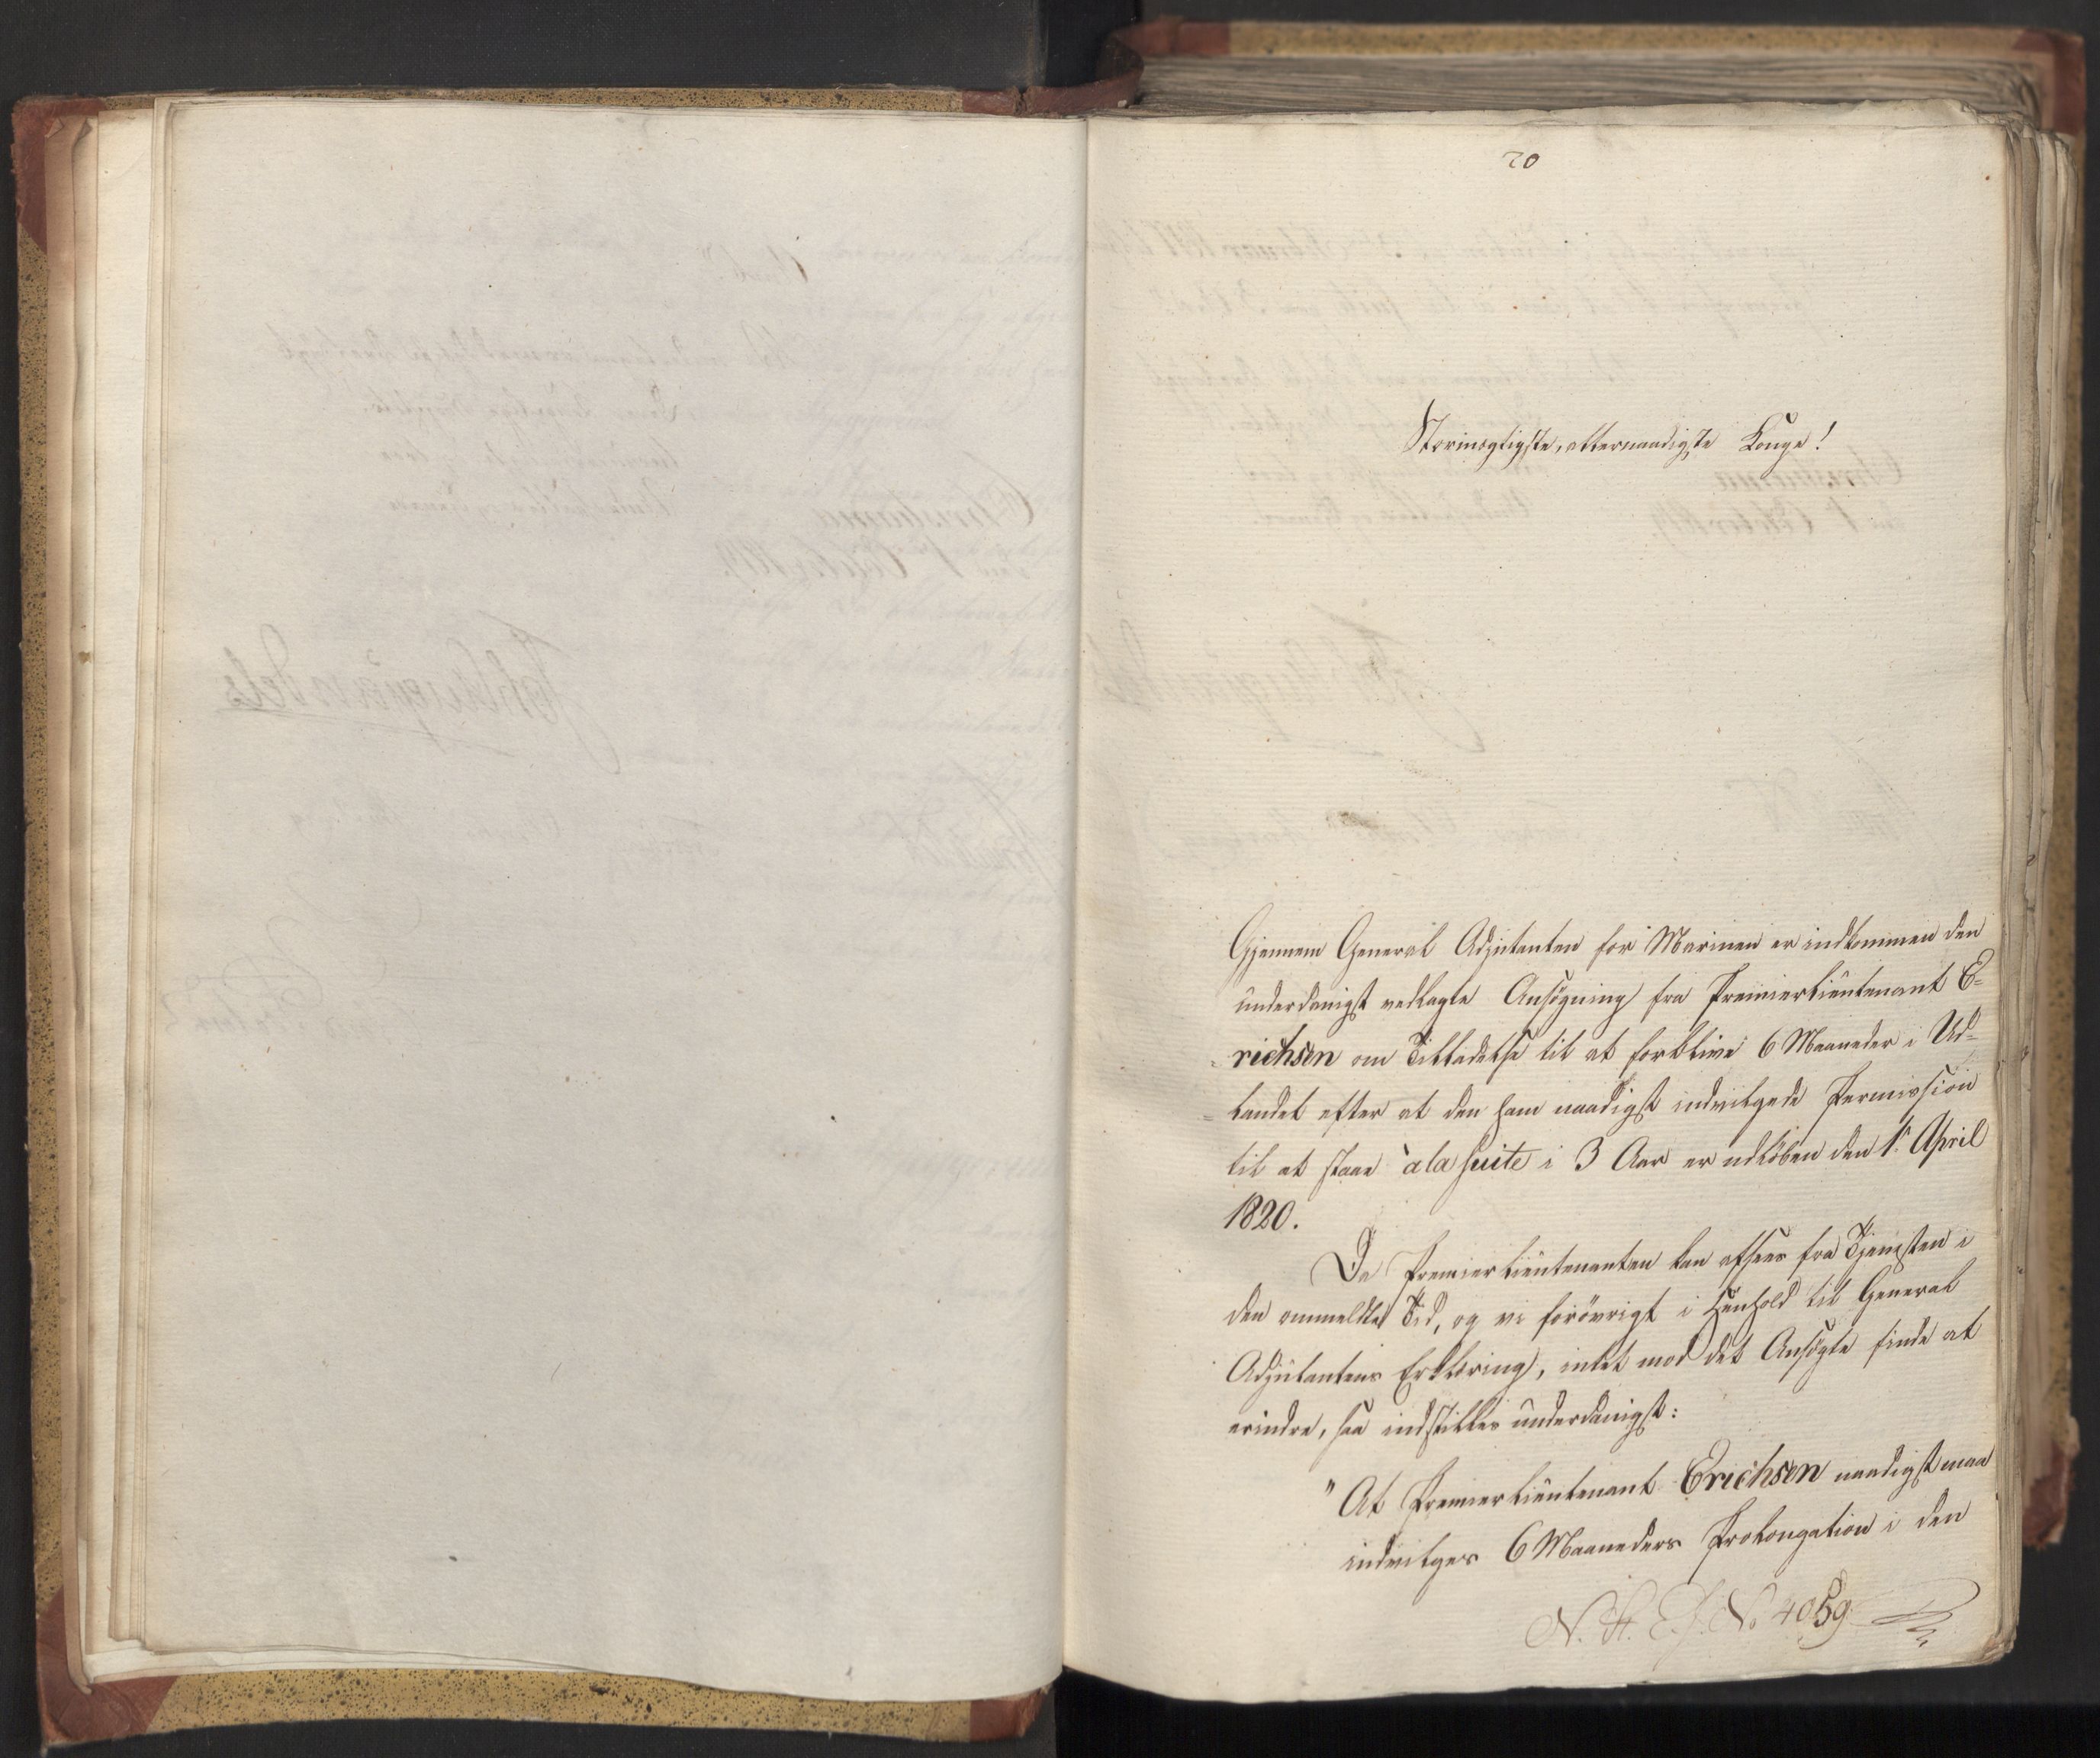 20
Stormægtigste, allernaadigste Konge!
Gjennem General Adjutanten for Marinen er indkommen den
underdanigst vedlagte Ansøgning fra Premierlieutenant E-
richsen om Tilladelse til at forblive 6 Maaneder i Ud-
landet efter at den ham naadigst indvilgede Permission
til at staae à la suite i 3 Aar er udløben den 1. April
1820.
Da Premierlieutenanten kan afsees fra Tjenesten i
den anmeldte Tid, og vi forøvrigt i Henhold til General
Adjutantens Erklæring, intet mod det Ansøgte finde at
erindre, saa indstilles underdanigst:
"At Premierlieutenant Erichsen naadigst maa
indvilges 6 Maaneders Prolongation i den
N. St. E. J. No 4059